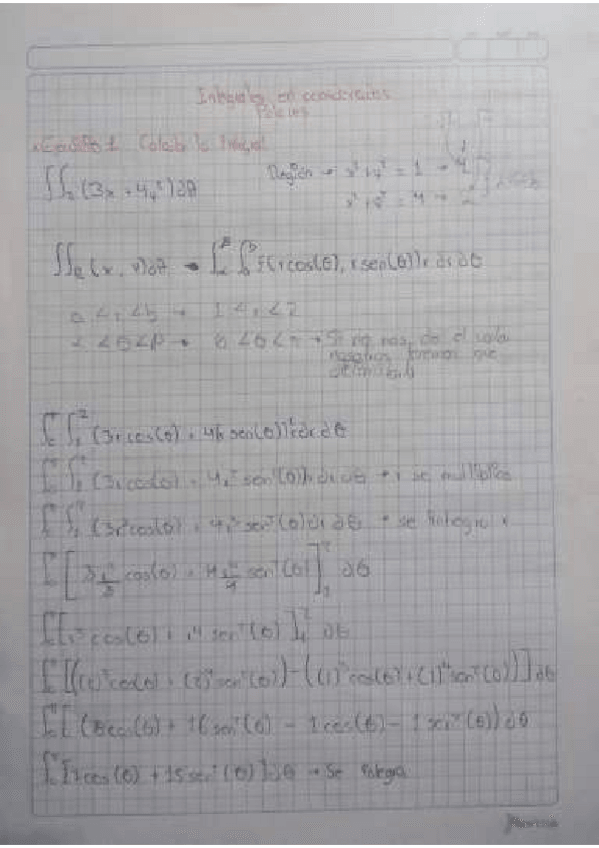 Integrales en coordenadas
Polares
Ejercicio 1 Calcula la integral
∬ᵣ (3x + 4y²)dθ Region → x² + y² = 1 → 1
x² + y² = 4 → 2
∬R (x, y)dA → ∫∫ f(r cos(θ), r sen(θ)) r dr dθ
a < r < b → 1 < r < 2
α < θ < β → 0 < θ < π → Si no nos da el valor
que
∫∫₁² (3r cos(θ) + 4(r sen(θ))²)r dr dθ
∫∫₁² (3r cos(θ) + 4r² sen²(θ))r dr dθ → r se multiplica
∫∫₁² (3r² cos(θ) + 4r³ sen²(θ)) dr dθ → se integra r
∫ [3 r³/3 cos(θ) + 4 r⁴/4 sen²(θ)]₁² dθ
∫ [r³ cos(θ) + r⁴ sen²(θ)]₁² dθ
∫ [((2)³ cos(θ) + (2)⁴ sen²(θ)) - ((1)³ cos(θ) + (1)⁴ sen²(θ))] dθ
∫ [(8 cos(θ) + 16 sen²(θ) - 1 cos(θ) - 1 sen²(θ)) dθ
∫ [7 cos(θ) + 15 sen²(θ)] dθ → Se integra